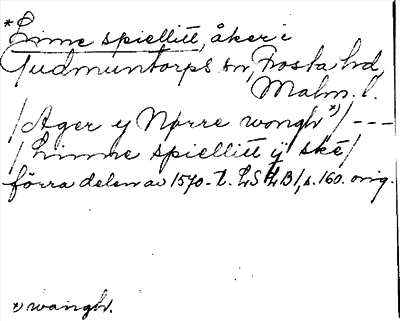 *Linne spiellitt, åker i
Gudmuntorps sn, Frosta hd,
Malm. l.
/Ager y Nørre wongh *)/ ---
/Linne spiellitt y ske/
förra delen av 1570-t. LSHLB1, s. 160. orig.
*) wangh.